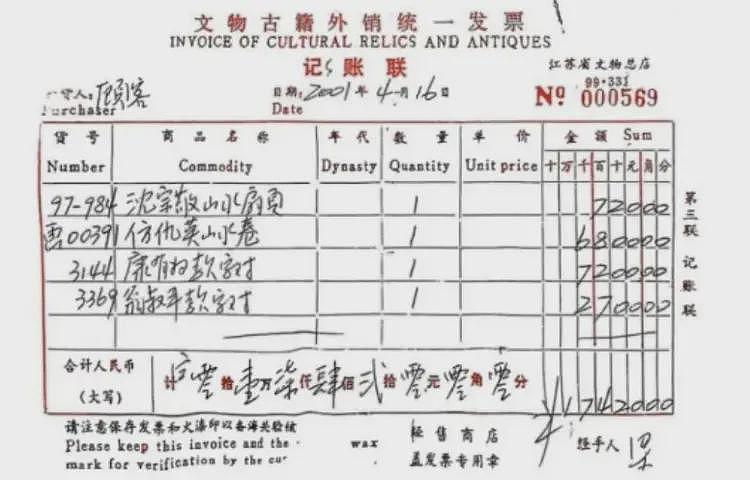 文物古籍外销统一发票
INVOICE OF CULTURAL RELICS AND ANTIQUES
记账联
江苏省文物总店
99·331
货人: 顾客 日期: 2001年4月16日 № 000569
Purchaser Date
货号 商品名称 年代 数量 单价 金额 Sum
Number Commodity Dynasty Quantity Unit price 十万千百十元角分
97-984 沈宗敬山水扇页 1 72000
00391 仿仇英山水卷 1 680000
3144 康有为款字对 1 720000
3369 翁叔平款字对 1 270000
第三联 记账联
合计人民币 计 零拾壹万柒仟肆佰贰拾零元零角零分 ¥1742000
(大写)
请注意保存发票和火漆印以备海关验核
Please keep this invoice and the wax 经售商店 经手人 梁
mark for verification by the cu 盖发票专用章